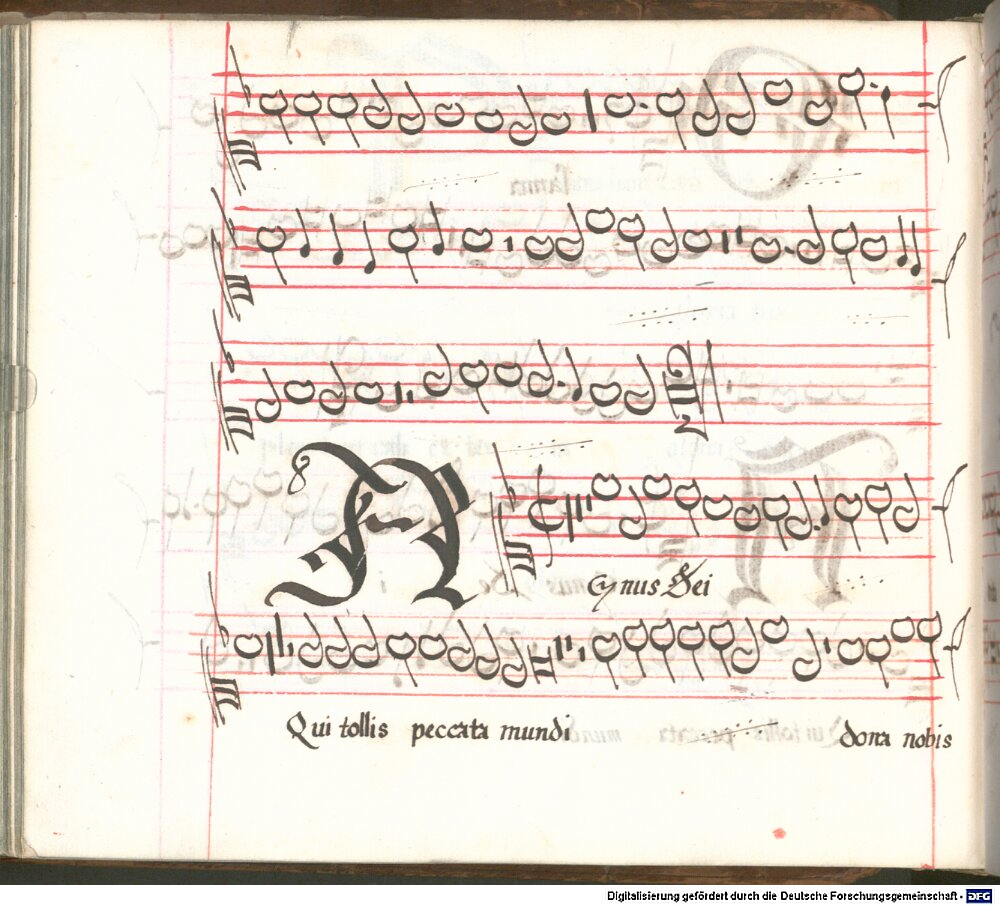 8
A
gnus Dei
Qui tollis peccata mundi dona nobis
Digitalisierung gefördert durch die Deutsche Forschungsgemeinschaft - DFG